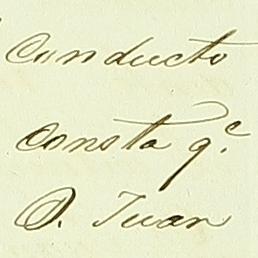 Conducto
Consta q.e
D. Juan